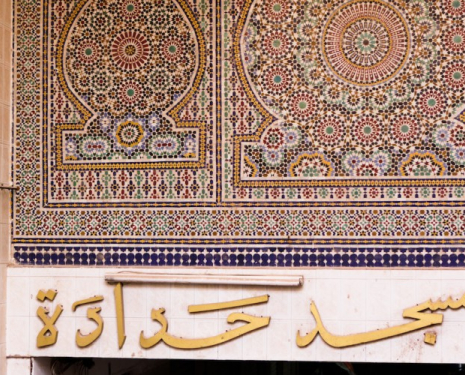 سجد حدادة